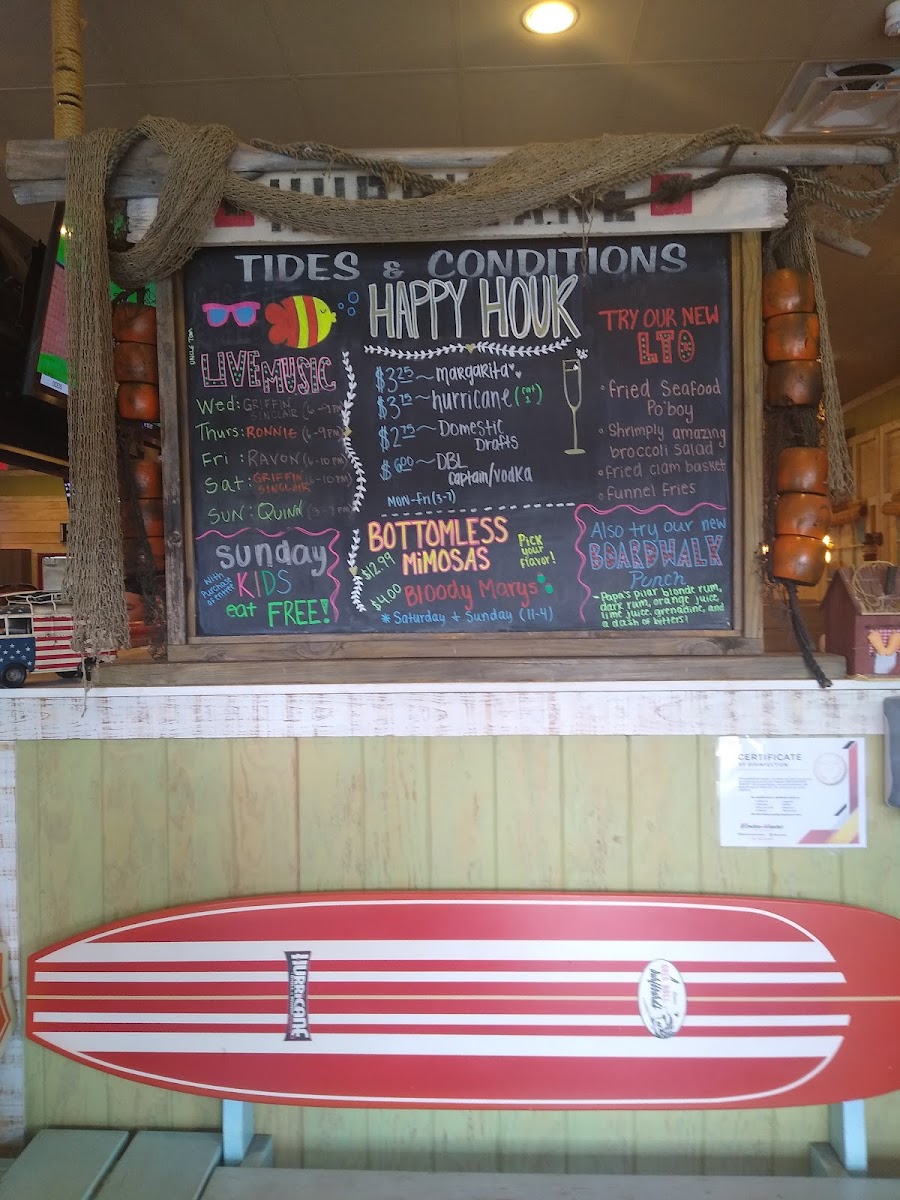 TIDES & CONDITIONS
UNCLE TOM
LIVE MUSIC
Wed: GRIFFIN
SINCLAIR (6-9PM)
Thurs: RONNIE (6-9PM)
Fri: RAVON (6-10PM)
Sat: GRIFFIN
SINCLAIR (6-10PM)
SUN: QUINN
sunday
KIDS
eat FREE!
With
Purchase
HAPPY HOUR
$3.25 ~ margarita
hurricane
$2.75 ~ Domestic
Drafts
$6.00 ~ DBL
captain/vodka
MON-Fri (3-7)
BOTTOMLESS
MIMOSAS
$12.99
Pick
your
Flavor!
$4.00 Bloody Marys
* Saturday + Sunday (11-4)
TRY OUR NEW
LTO
° fried Seafood
Po'boy
° Shrimply amazing
broccoli salad
° fried clam basket
° funnel fries
Also try our new
BOARDWALK
Punch
~ Papa's pilar blonde rum,
dark rum, orange juice,
lime juice, grenadine, and
a dash of bitters!
CERTIFICATE
OF DISINFECTION
HURRICANE